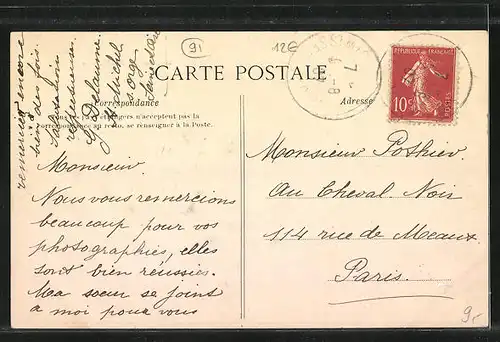 91
12€
CARTE POSTALE
Correspondance
Adresse
étrangers n'acceptent pas la
correspondance au recto, se renseigner à la Poste.
RÉPUBLIQUE FRANÇAISE
10c
POSTES
Monsieur.
Nous vous remercions
beaucoup pour vos
photographies, elles
sont bien réussies.
Ma soeur se joint
a moi pour vous
remercier encore
bien des fois.
Delaunne
St Michel
s. orge
Monsieur Pothier
Au Cheval Noir
114 rue de Meaux.
Paris.
9,-